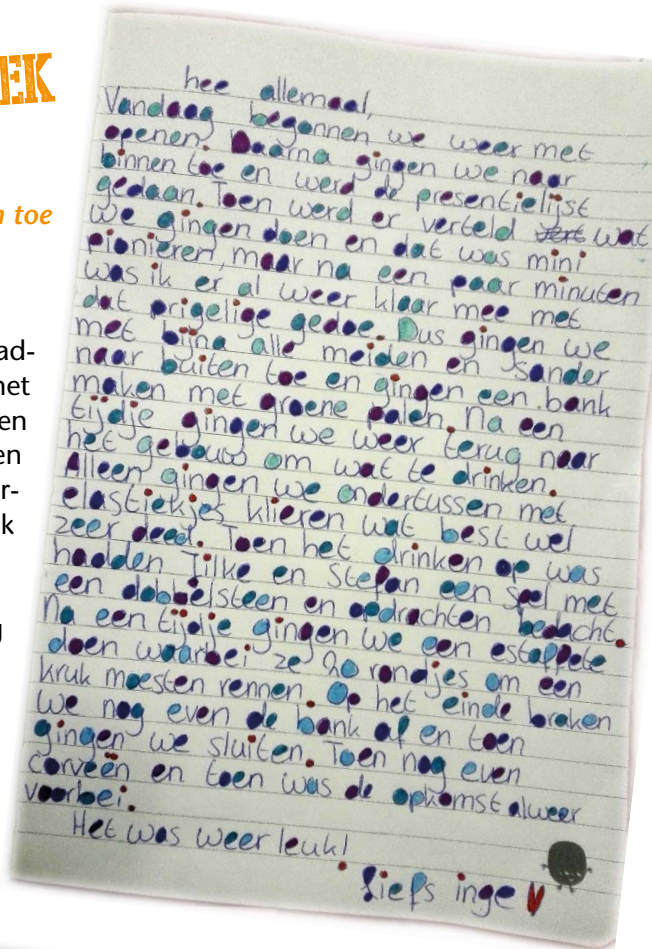 EK
n toe
ad-
net
en
en
r-
k
g
hee allemaal,
Vandaag begonnen we weer met
openen. Daarna gingen we naar
binnen toe en werd de presentielijst
gedaan. Toen werd er verteld wat
we gingen doen en dat was mini
pionieren, maar na een paar minuten
was ik er al weer klaar mee met
dat prigelige gedoe. Dus gingen we
met bijna alle meiden en Sander
naar buiten toe en gingen een bank
maken met groene palen. Na een
tijdje gingen we weer terug naar
het gebouw om wat te drinken.
Alleen gingen we ondertussen met
elastiekjes klieren wat best wel
zeer deed. Toen het drinken op was
hadden Jilke en Stefan een spel met
een dobbelsteen en opdrachten bedacht.
Na een tijdje gingen we een estaffete
doen waarbei ze 20 rondjes om een
kruk moesten rennen. Op het einde braken
we nog even de bank af en toen
gingen we sluiten. Toen nog even
corveën en toen was de opkomst alweer
voorbei.
Het was weer leuk!
liefs inge